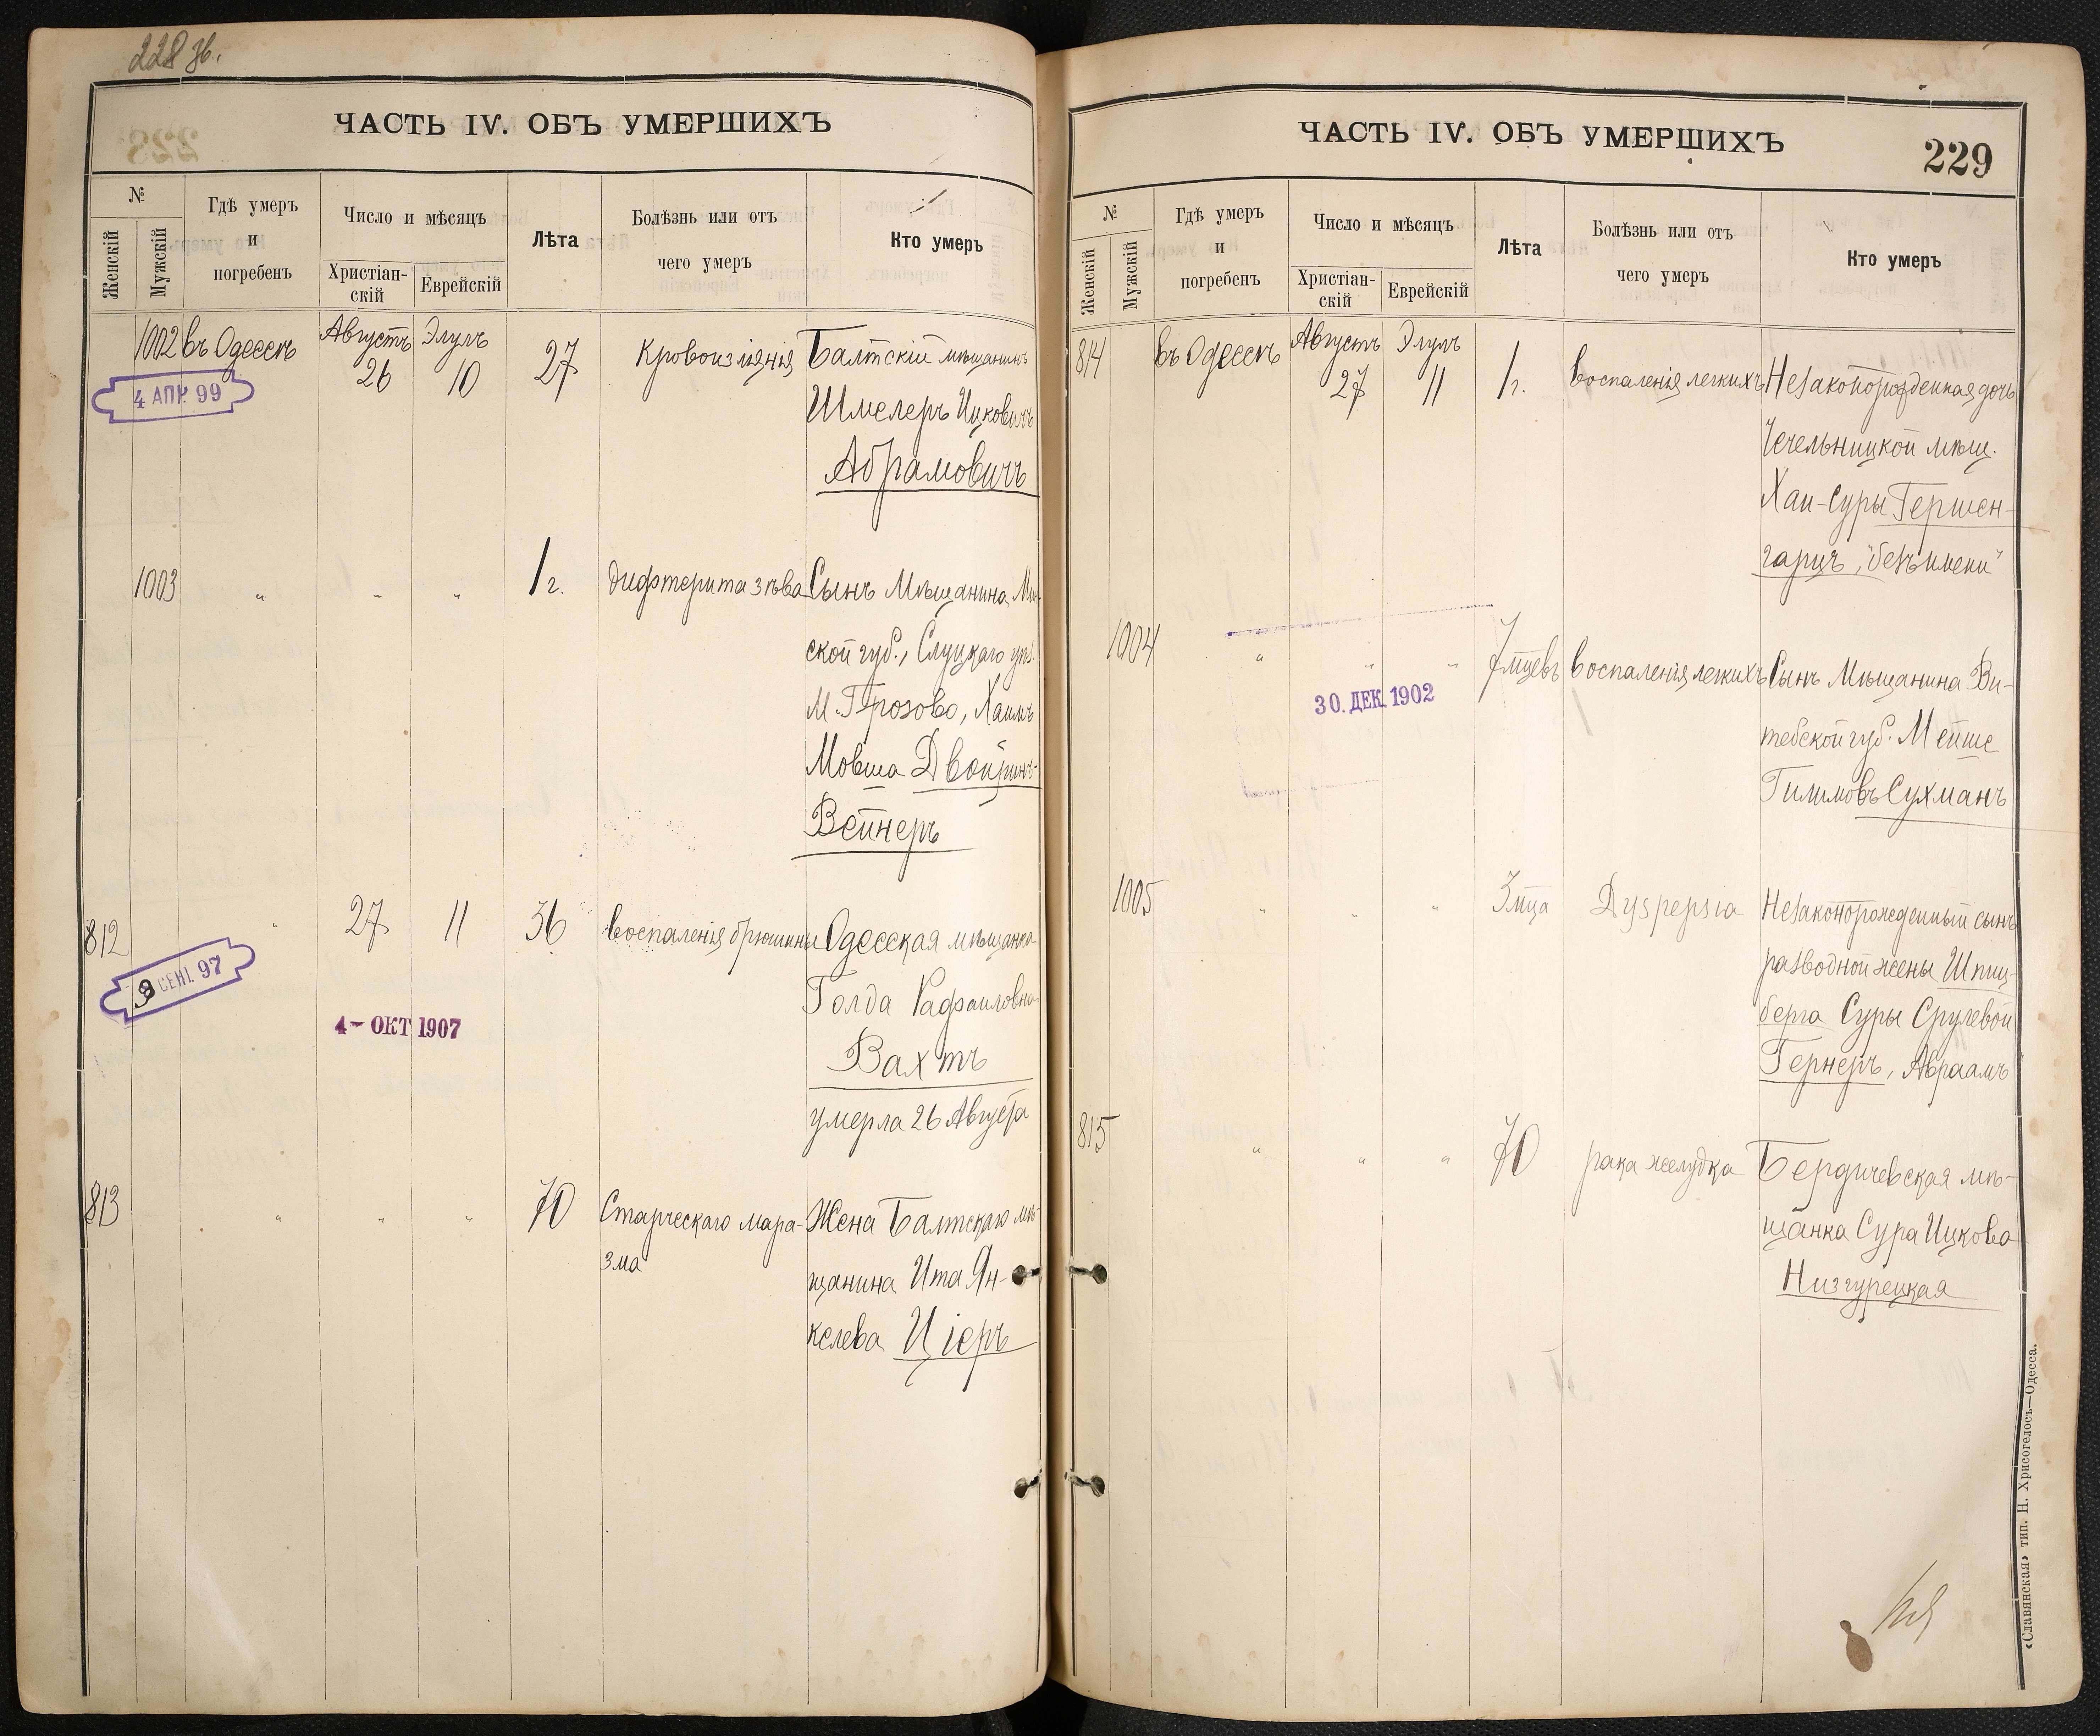 228 зв.
ЧАСТЬ IV. ОБЪ УМЕРШИХЪ
№
Женскій
Мужскій
Гдѣ умеръ
и
погребенъ
Число и мѣсяцъ
Христіан-
скій
Еврейскій
Лѣта
Болѣзнь или отъ
чего умеръ
Кто умеръ
1002 въ Одессѣ Августъ Элулъ 27 Кровоизліянія Балтскій мѣщанинъ
26 10
4 АПР. 99
Шмелеръ Ицковичъ
Абрамовичъ
1003 " " " 1 г. дифтерита зѣва Сынъ Мѣщанина Мин-
ской губ., Слуцкаго уѣз.
М. Грозово, Хаимъ
Мовша Двойринъ-
Вейнеръ
812 " 27 11 36 воспаленія брюшины Одесская мѣщанка
СЕН. 97
Голда Рафаиловна
4- ОКТ 1907
Вахтъ
умерла 26 Августа
813 " " " 70 Старческаго мара- Жена Балтскаго мѣ-
зма
щанина Ита Ян-
келева Ціеръ
ЧАСТЬ IV. ОБЪ УМЕРШИХЪ
229
№
Женскій
Мужскій
Гдѣ умеръ
и
погребенъ
Число и мѣсяцъ
Христіан-
скій
Еврейскій
Лѣта
Болѣзнь или отъ
чего умеръ
Кто умеръ
814 въ Одессѣ Августъ Элулъ 1 г. воспаленія легкихъ Незаконорожденная дочь
27 11
Чечельницкой мѣщ.
Хаи-Суры Гершен-
гарцъ, "безъ имени"
1004 " " " 7 мцевъ воспаленія легкихъ Сынъ Мѣщанина Ви-
30. ДЕК. 1902
тебской губ. Мейше
Гилимовъ Сухманъ
1005 " " " 3 мца Dyspepsia Незаконорожденный сынъ
разводной жены Шпиц-
берга Суры Срулевой
Гернеръ, Абраамъ
815 " " " 70 рака желудка Бердичевская мѣ-
щанка Сура Ицкова
Низгурецкая
«Славянская» тип. Н. Хрисогелосъ—Одесса.